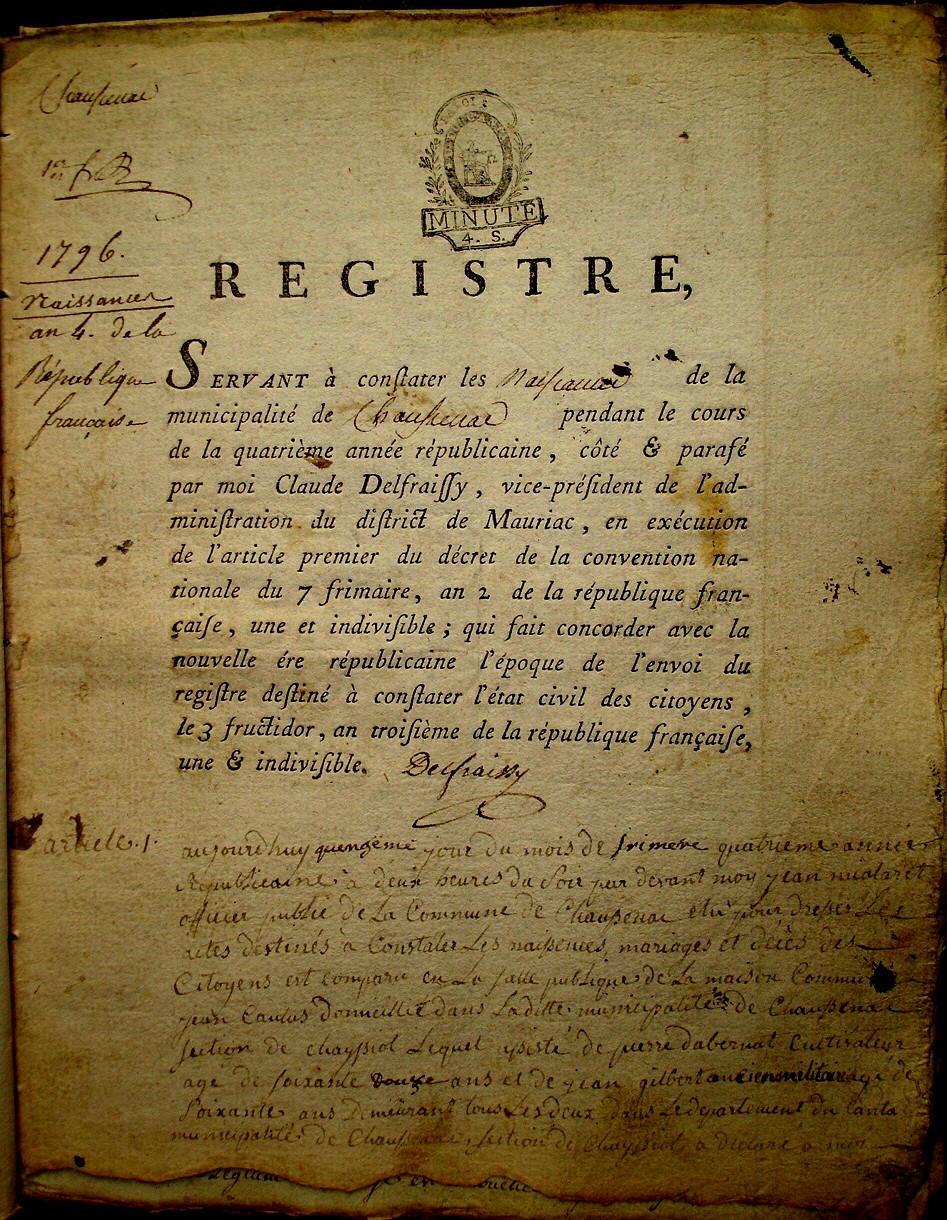 Chaussenac
1er
1796.
Naissances
an 4. de la
République
française
MINUTE
4. S.
REGISTRE,
SERVANT à conſtater les Naissances de la
municipalité de Chaussenac pendant le cours
de la quatrième année républicaine, côté & parafé
par moi Claude Delfraiſſy, vice-préſident de l'ad-
miniſtration du diſtrict de Mauriac, en exécution
de l'article premier du décret de la convention na-
tionale du 7 frimaire, an 2 de la république fran-
çaiſe, une et indiviſible ; qui fait concorder avec la
nouvelle ére républicaine l'époque de l'envoi du
regiſtre deſtiné à conſtater l'état civil des citoyens,
le 3 fructidor, an troiſième de la république françaiſe,
une & indiviſible. Delfraissy
article. 1.
aujourdhuy quengeme jour du mois de frimere quatrieme année
Republicaine à deux heures du Soir par devant moy jean
officier public de La Commune de Chaussenac elu pour dresser Les
actes destinés à Constater Les naissences, mariages et décès des
Citoyens est comparu en La salle publique de La maison Commune
jean domeillié dans Laditte municipalité de Chaussenac
section de chayssiol Lequel assisté de pierre dabernat Cultivateur
agé de soixante douze ans et de jean gilbert ancien militaire agé de
Soixante ans Demeurant tous Les deux dans Le departement du Cantal
municipalité de Chaussenac, section de Chayssiol, a déclaré à moi